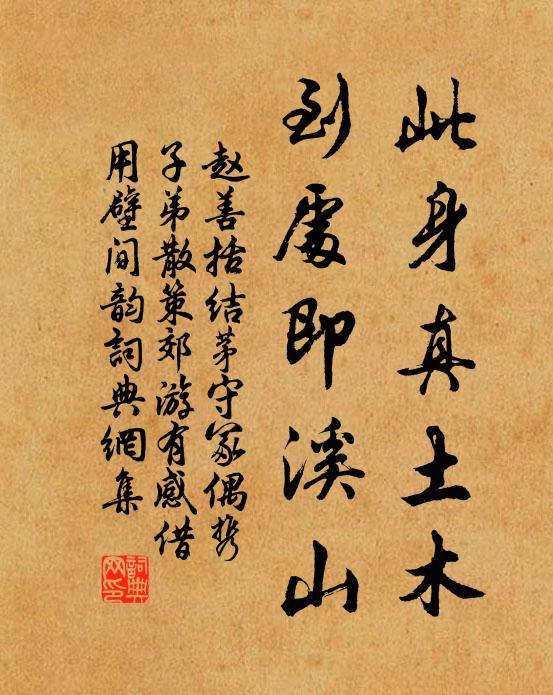 此身真土木
到處即溪山
赵善括结茅守冢偶携
子弟散策郊游有感借
用壁间韵詞典網集
詞典
网印